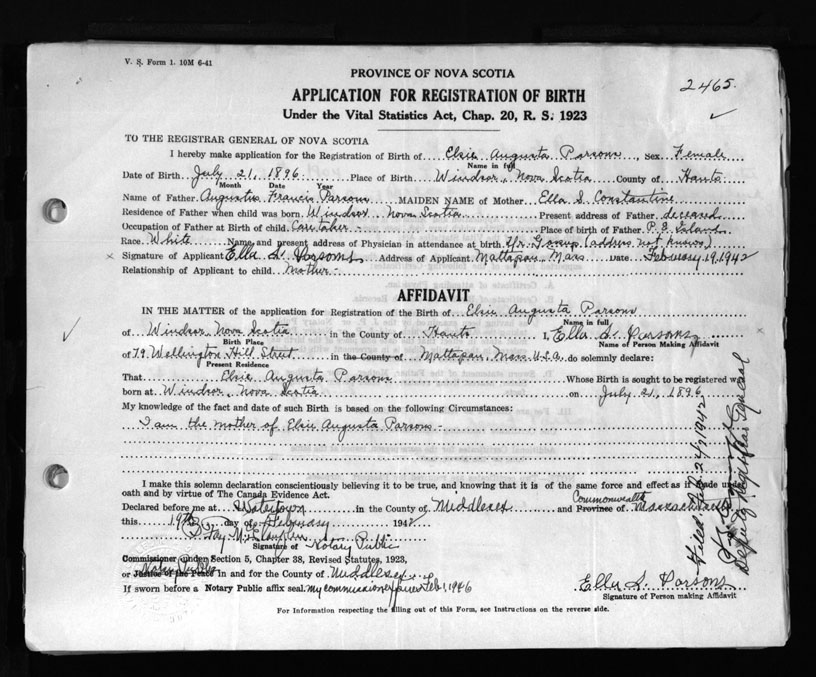 V. S. Form 1. 10M 6-41
PROVINCE OF NOVA SCOTIA
2465.
APPLICATION FOR REGISTRATION OF BIRTH
Under the Vital Statistics Act, Chap. 20, R. S. 1923
TO THE REGISTRAR GENERAL OF NOVA SCOTIA
I hereby make application for the Registration of Birth of Elsie Augusta Parsons, Sex Female
Name in full
Date of Birth July 21, 1896 Place of Birth Windsor, Nova Scotia County of Hants
Month Date Year
Name of Father Augustus Francis Parsons MAIDEN NAME of Mother Ella S. Constantine
Residence of Father when child was born Windsor Nova Scotia Present address of Father deceased
Occupation of Father at Birth of child Caretaker - Place of Birth of Father P. E. Island
Race White Name and present address of Physician in attendance at birth (address not known)
Signature of Applicant Ella S. Parsons Address of Applicant Mattapan, Mass Date February 19, 1942
Relationship of Applicant to child mother -
AFFIDAVIT
IN THE MATTER of the application for Registration of the Birth of Elsie Augusta Parsons
Name in full
of Windsor, Nova Scotia in the County of Hants I, Ella S. Parsons
Birth Place Name of Person Making Affidavit
of 79 Wellington Hill Street in the County of Mattapan, Mass. U.S.A. do solemnly declare:
Present Residence
That Elsie Augusta Parsons Whose Birth is sought to be registered was
born at Windsor, Nova Scotia on July 21, 1896
My knowledge of the fact and date of such Birth is based on the following Circumstances:
I am the mother of Elsie Augusta Parsons -
I make this solemn declaration conscientiously believing it to be true, and knowing that it is of the same force and effect as if made under
oath and by virtue of The Canada Evidence Act.
Commonwealth
Declared before me at Watertown in the County of Middlesex and Province of Massachusetts
this 19th day of February 1942
Signature of Notary Public
Commissioner under Section 5, Chapter 38, Revised Statutes, 1923,
Notary Public
or Justice of the Peace in and for the County of Middlesex
If sworn before a Notary Public affix seal. My commission expires Feb 1, 1946
Ella S. Parsons
Signature of Person making Affidavit
For Information respecting the filling out of this Form, see Instructions on the reverse side.
Filed Feb 24/1942
Deputy Registrar General